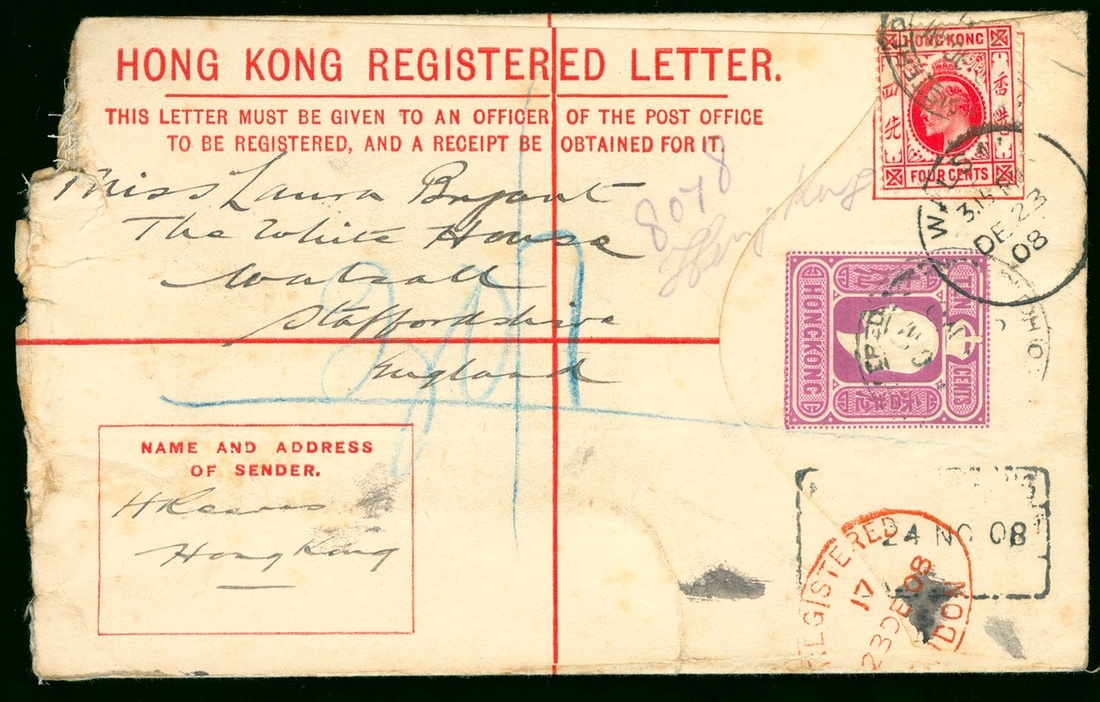 HONG KONG REGISTERED LETTER.
THIS LETTER MUST BE GIVEN TO AN OFFICER OF THE POST OFFICE
TO BE REGISTERED, AND A RECEIPT BE OBTAINED FOR IT.
HONG KONG
四
香港
FOUR CENTS
Miss Laura Bryant
The White House
Walsall
Staffordshire
England
8078
Hong Kong
WALSA
3.15 AM
DE 23
08
TEN
CENTS
HONGKONG
NAME AND ADDRESS
OF SENDER.
H Reeves
Hong Kong
24 NO 08
REGISTERED
17
23 DE 08
DON